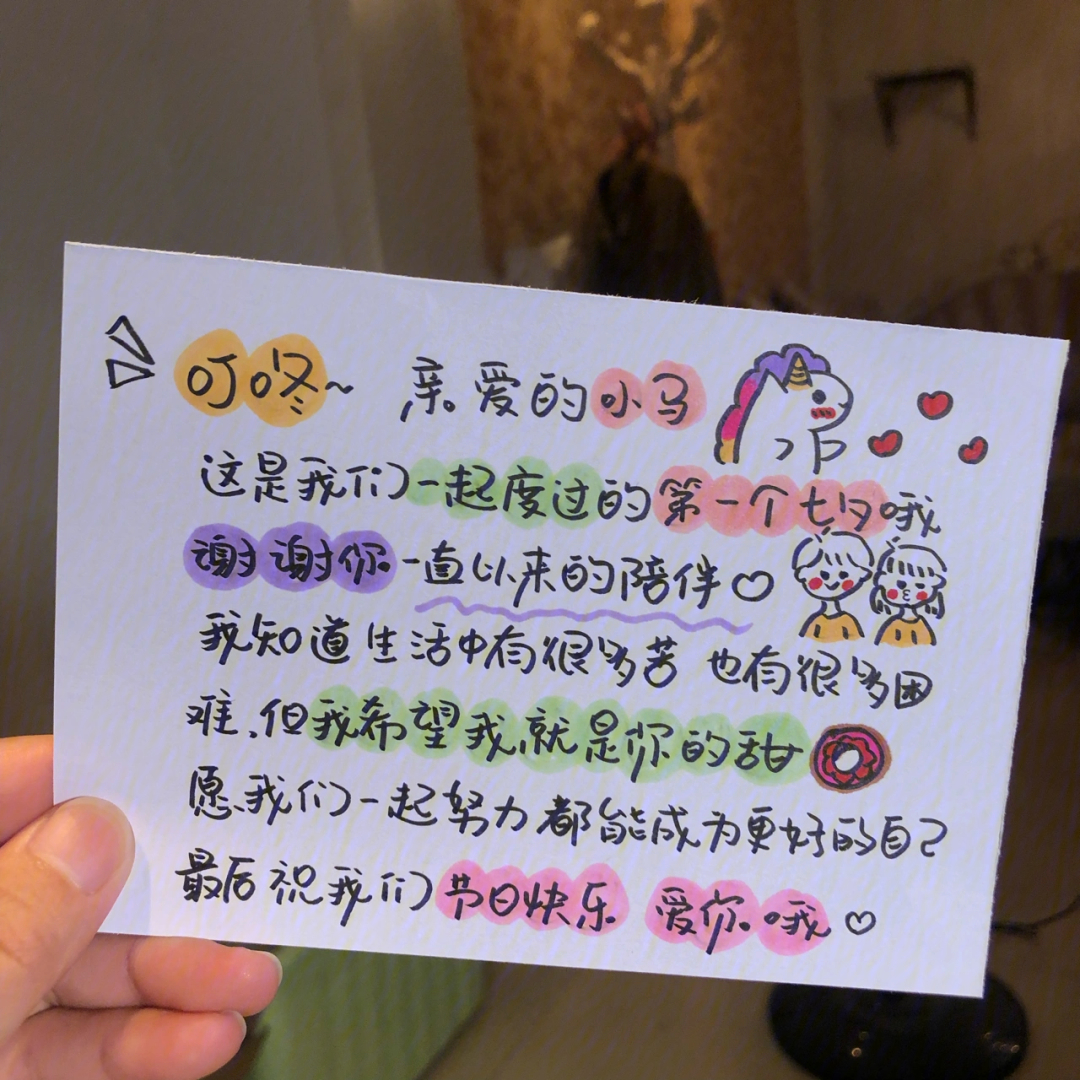 叮咚~ 亲爱的小马
这是我们一起度过的第一个七夕哦
谢谢你一直以来的陪伴♡
我知道生活中有很多苦 也有很多困
难、但我希望我就是你的甜
愿我们一起努力都能成为更好的自己
最后祝我们节日快乐 爱你哦♡